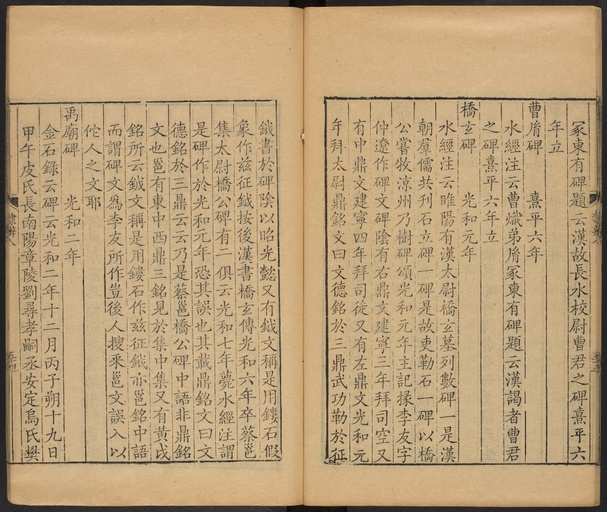 冢東有碑題云漢故長水校尉曹君之碑熹平六
年立
曹胤碑　熹平六年
水經注云曹熾弟胤冢東有碑題云漢謁者曹君
之碑熹平六年立
橋玄碑　光和元年
水經注云睢陽有漢太尉橋玄墓列數碑一是漢
朝羣儒共刋石立碑一碑是故吏勒石一碑以橋
公嘗牧涼州乃樹碑頌光和元年主記掾李友字
仲遼作碑文碑陰有右鼎文建寧三年拜司空又
有中鼎文建寧四年拜司徒又有左鼎文光和元
年拜太尉鼎銘文曰文德銘於三鼎武功勒於征
鉞書於碑陰以昭光懿又有鉞文稱是用鏤石假
象作兹征鉞按後漢書橋玄傳光和六年卒蔡邕
集太尉橋公碑有二俱云光和七年薨水經注謂
是碑作於光和元年恐其誤也其載鼎銘文曰文
德銘於三鼎云云乃是蔡邕橋公碑中語非鼎銘
文也邕有東中西鼎三銘見於集中集又有黃戉
銘所云鉞文稱是用鏤石作兹征鉞亦邕銘中語
而謂碑文爲李友所作豈後人搜釆邕文誤入以
佗人之文耶
禹廟碑　光和二年
金石錄云碑云光和二年十二月丙子朔十九日
甲午皮氏長南陽章陵劉尋孝嗣丞安定烏氏樊